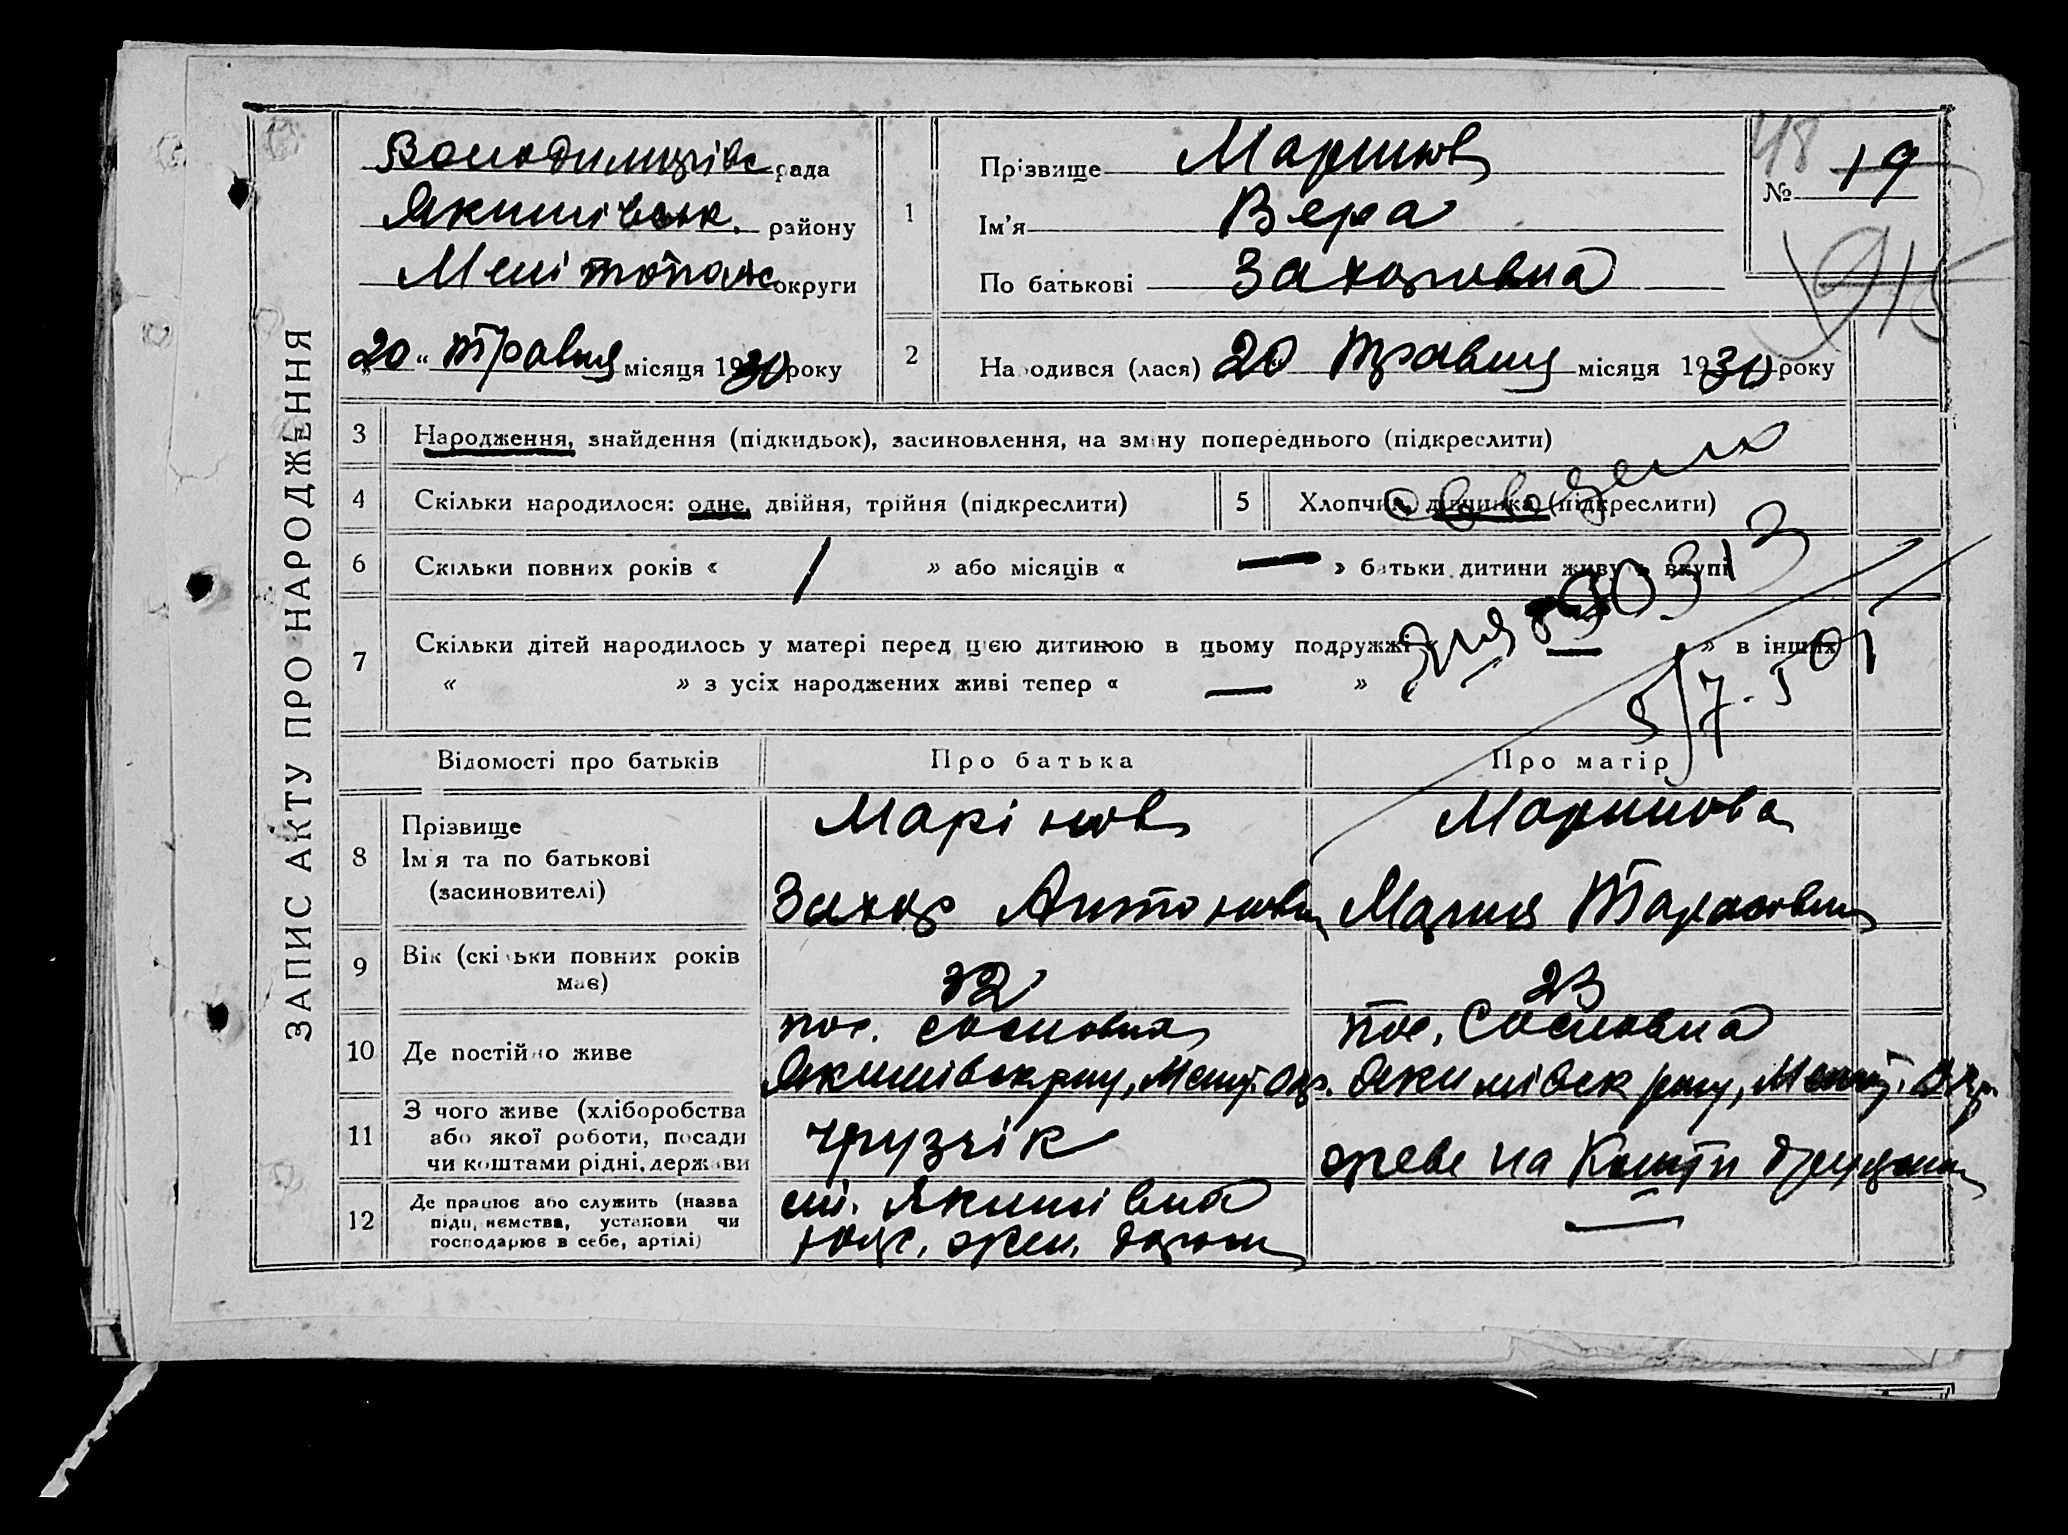 ЗАПИС АКТУ ПРО НАРОДЖЕННЯ
Володимирівс рада
Якимівськ. району
Мелітопольс округи
„20“ травня місяця 1930 року
1
Прізвище Маринов
Ім'я Вера
По батькові Захаровна
48
№ 19
2
Народився (лася) 20 травня місяця 1930 року
3 Народження, знайдення (підкидьок), засиновлення, на зміну попереднього (підкреслити)
4 Скільки народилося: одне, двійня, трійня (підкреслити)
5 Хлопчик, дівчинка (підкреслити)
6 Скільки повних років « 1 » або місяців « — » батьки дитини живуть вкупі
7 Скільки дітей народилось у матері перед цією дитиною в цьому подружжі « — » в інших
« » з усіх народжених живі тепер « — »
Відомості про батьків
Про батька
Про матір
8
Прізвище
Ім'я та по батькові
(засиновителі)
Марінов
Захар Антонович
Маринова
Мария Тарасовна
9
Вік (скільки повних років
має)
32
23
10 Де постійно живе
пос. Сосновка
Якимівськ р-ну, Меліт. Окр.
пос. Сосновка
Якимівськ р-ну, Меліт. Окр.
11
З чого живе (хліборобства
або якої роботи, посади
чи коштами рідні, держави
грузчік
живе на кошти
12
Де працює або служить (назва
підприємства, установи чи
господарює в себе, артілі)
ст. Якимівка
жел. дороги
—